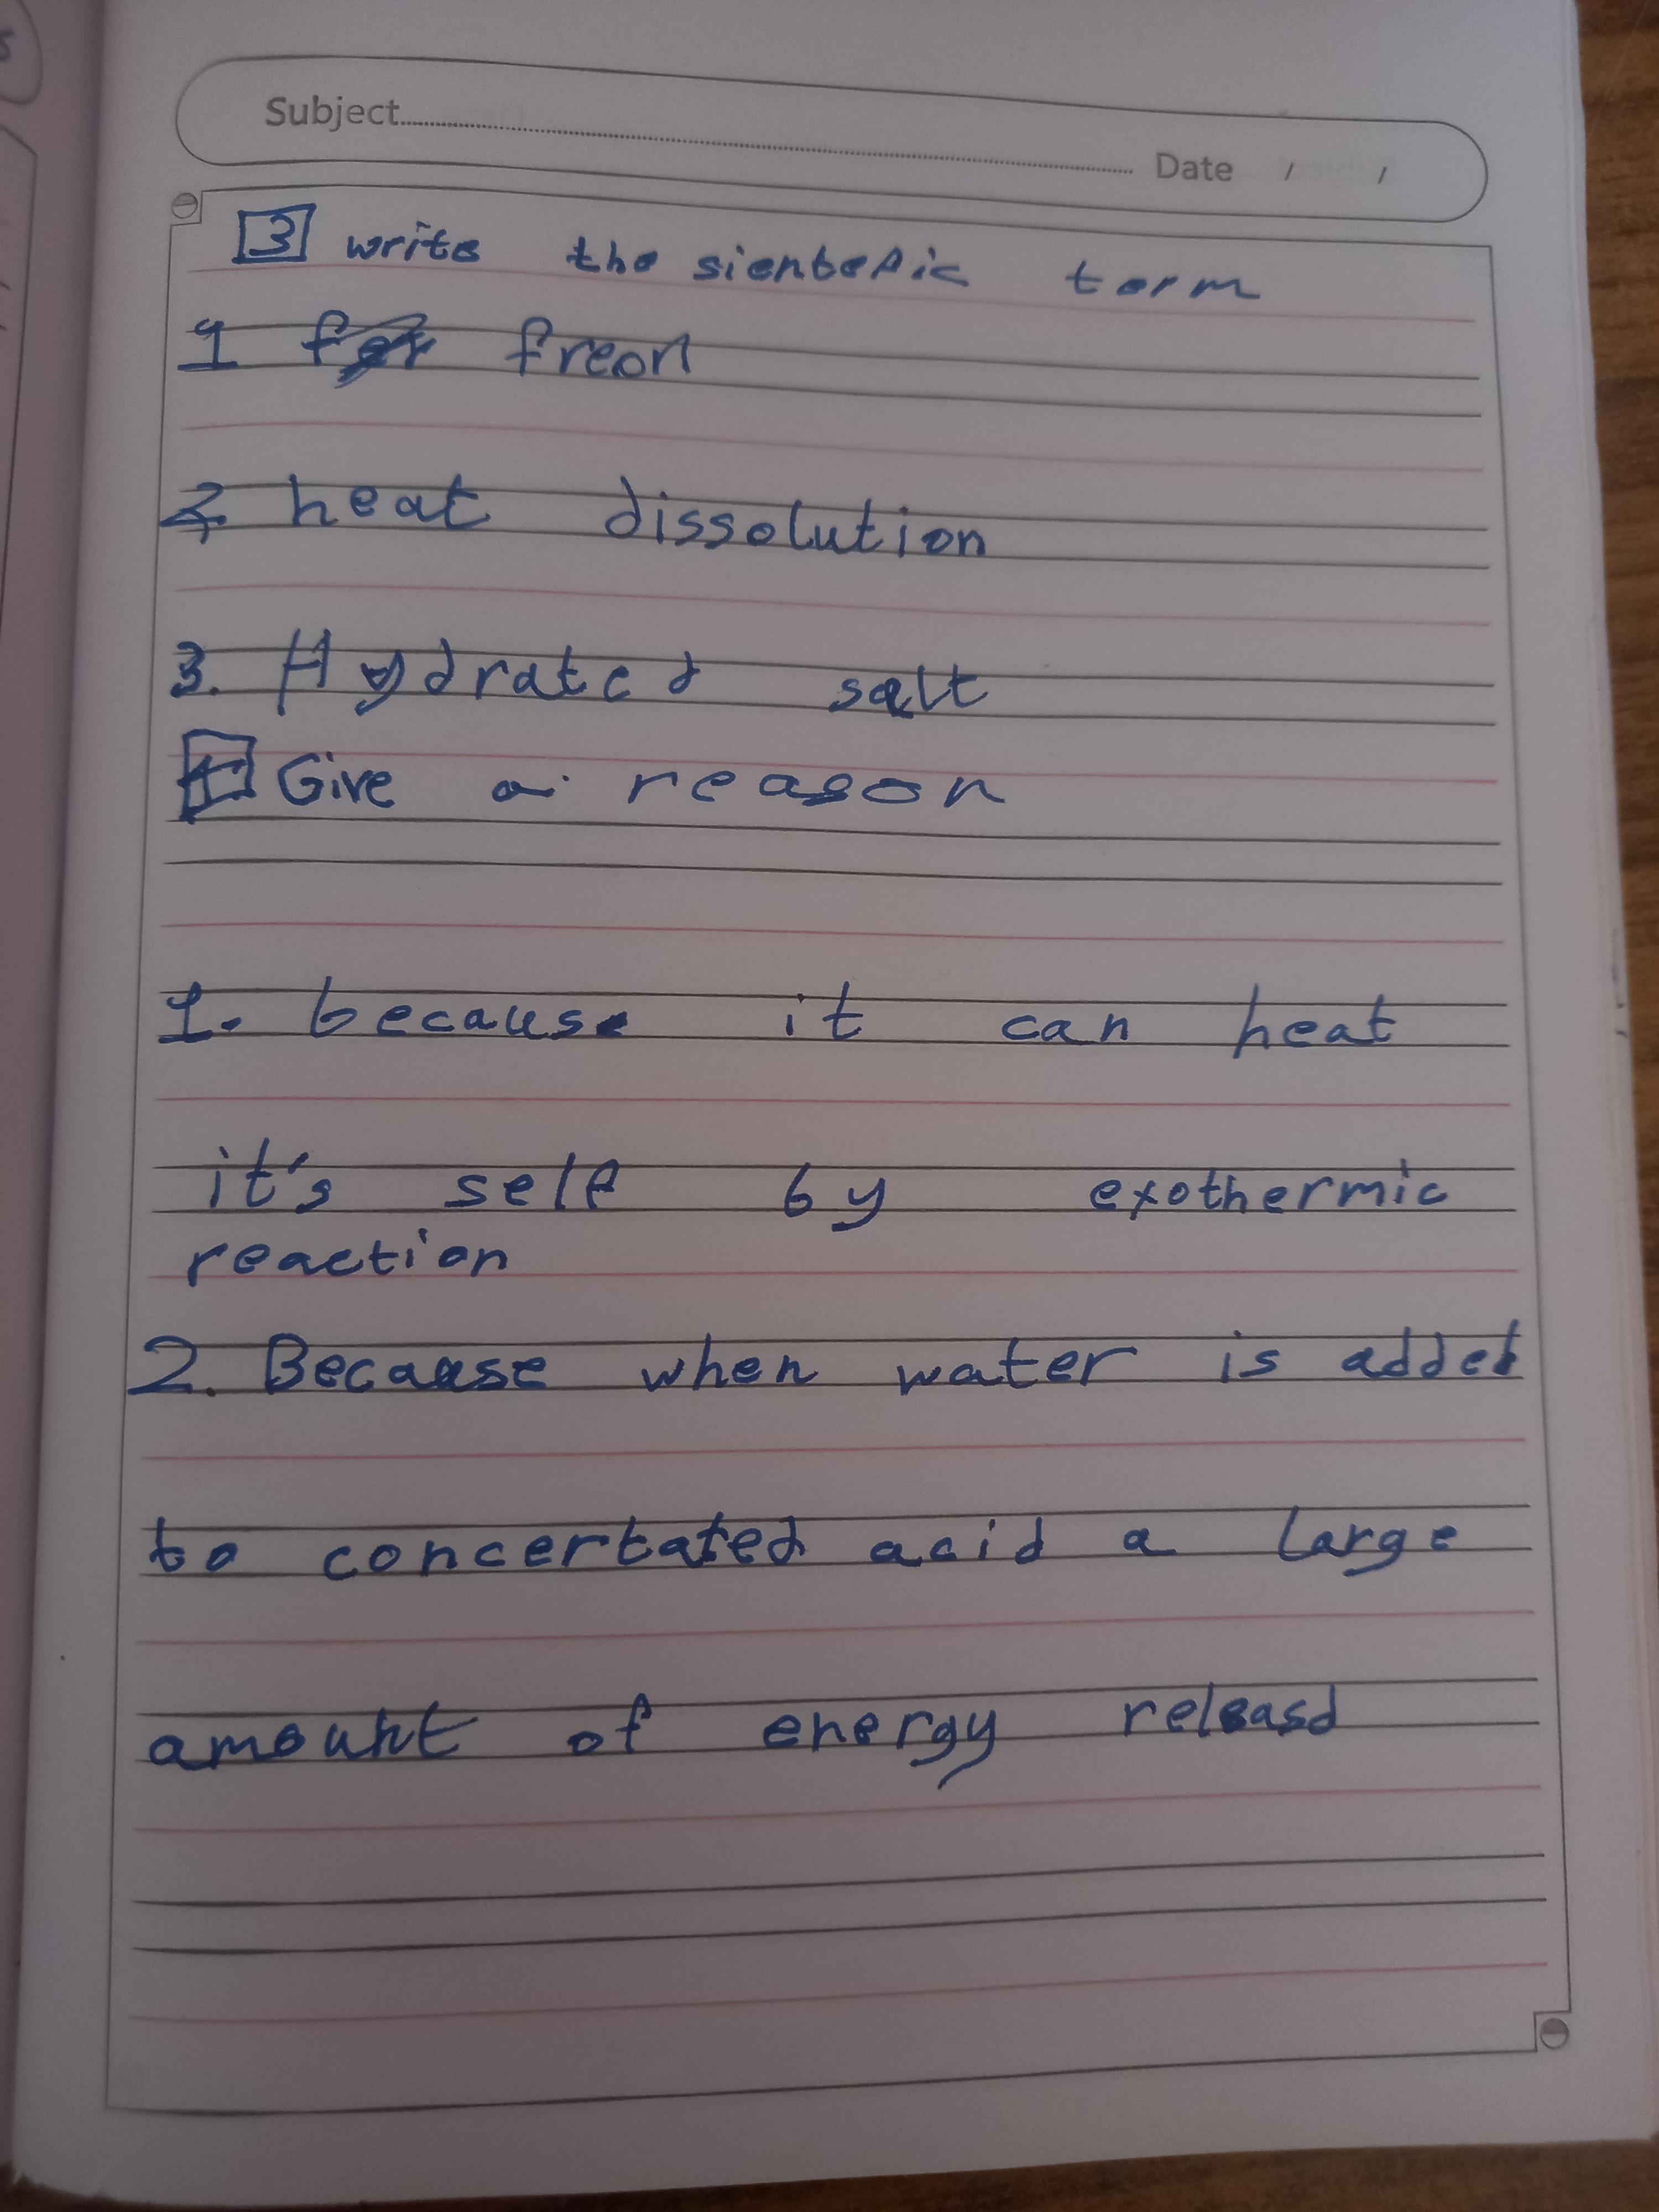 Subject........................ Date / /
3 write the sientefic term
1 freon
2 heat dissolution
3. Hydrated salt
4 Give a reason
1. because it can heat
it's self by exothermic
reaction
2. Because when water is added
to concertated acid a large
amount of energy releasd